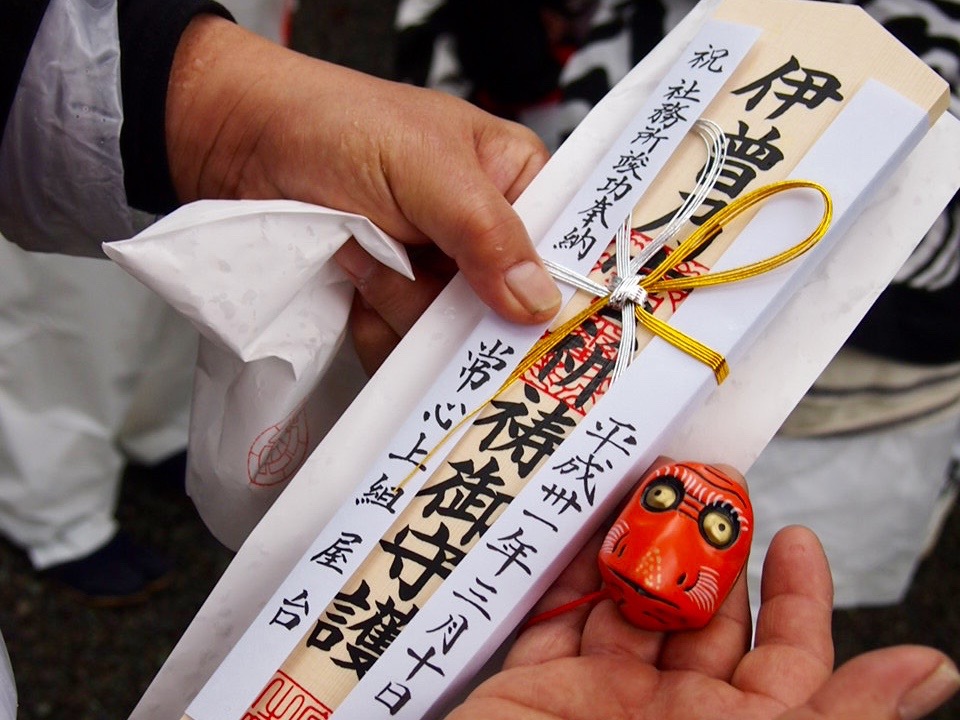 平成卅一年三月十日
伊曽乃 祈祷御守護
祝 社務所竣功奉納
常心上組屋台